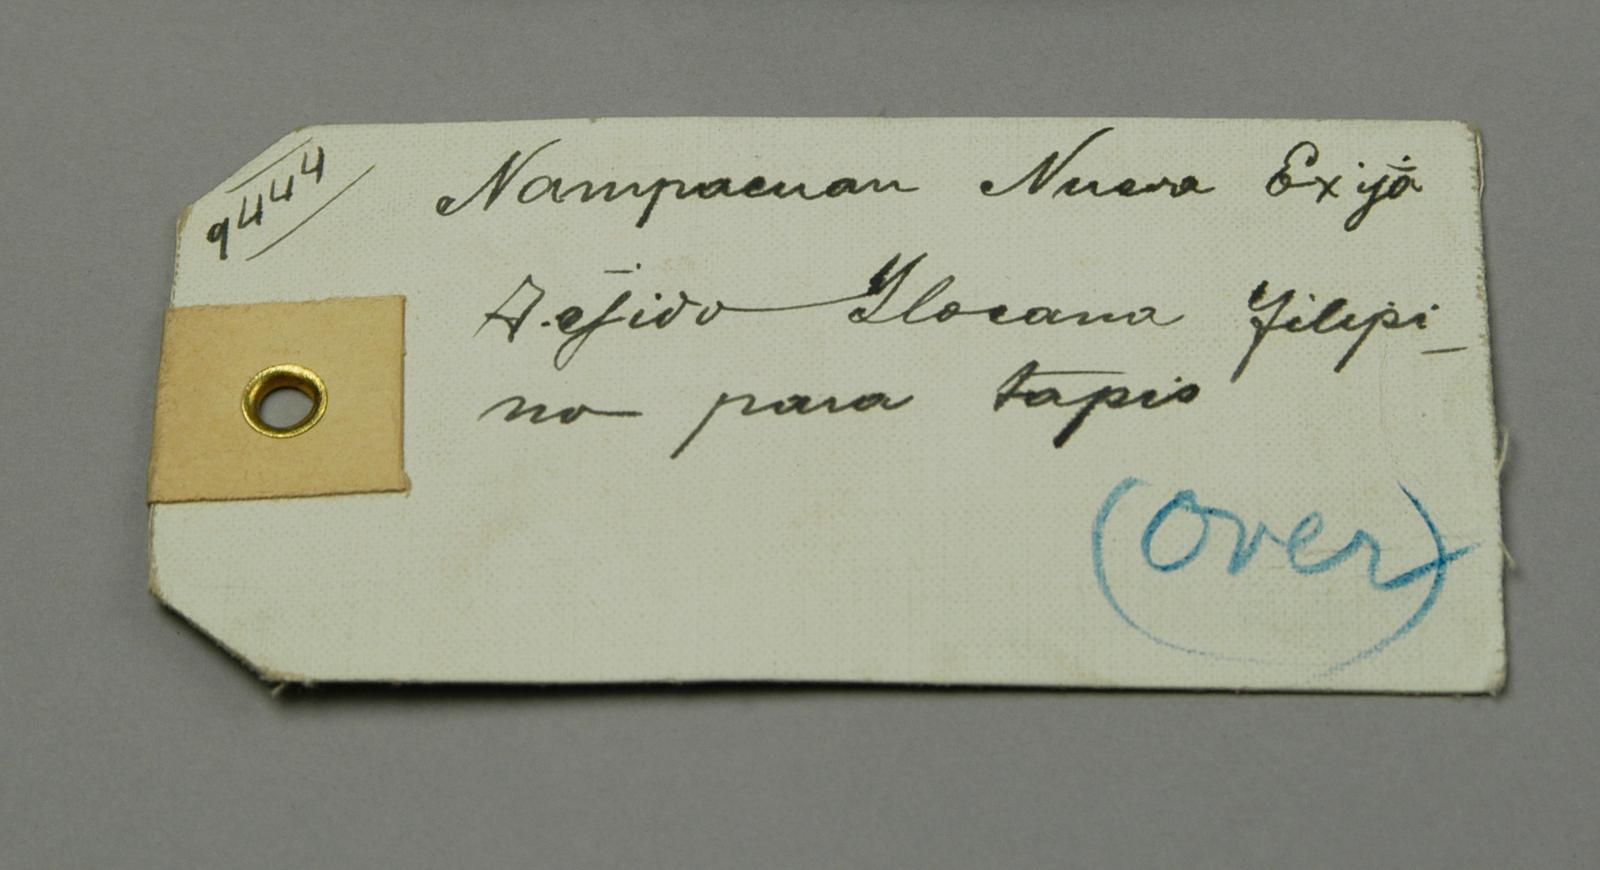 9444
Nampacuan Nueva Exija
Tejido Ylocana Filipi-
no para tapis
(over)